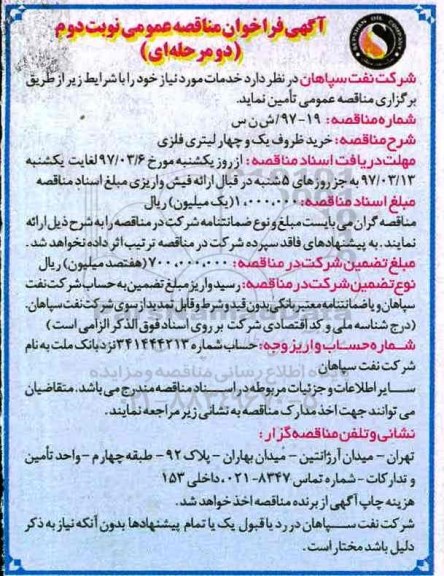 SEPAHAN OIL COMPANY
آگهی فراخوان مناقصه عمومی نوبت دوم
(دو مرحله‌ای)
شرکت نفت سپاهان در نظر دارد خدمات مورد نیاز خود را با شرایط زیر از طریق
برگزاری مناقصه عمومی تأمین نماید.
شماره مناقصه: ۱۹-۹۷/ش ن س
شرح مناقصه: خرید ظروف یک و چهار لیتری فلزی
مهلت دریافت اسناد مناقصه: از روز یکشنبه مورخ ۹۷/۰۳/۶ لغایت یکشنبه
۹۷/۰۳/۱۳ به جز روزهای ۵شنبه در قبال ارائه فیش واریزی مبلغ اسناد مناقصه
مبلغ اسناد مناقصه: ۱،۰۰۰،۰۰۰(یک میلیون) ریال
مناقصه گران می بایست مبلغ و نوع ضمانتنامه شرکت در مناقصه را به شرح ذیل ارائه
نمایند. به پیشنهادهای فاقد سپرده شرکت در مناقصه ترتیب اثر داده نخواهد شد.
مبلغ تضمین شرکت در مناقصه: ۷۰۰،۰۰۰،۰۰۰ (هفتصد میلیون) ریال
نوع تضمین شرکت در مناقصه: رسید واریز مبلغ تضمین به حساب شرکت نفت
سپاهان و یا ضمانتنامه معتبر بانکی بدون قید و شرط و قابل تمدید از سوی شرکت نفت سپاهان.
(درج شناسه ملی و کد اقتصادی شرکت بر روی اسناد فوق الذکر الزامی است)
شماره حساب واریز وجه: حساب شماره ۳۴۱۴۴۴۲۱۳ نزد بانک ملت به نام
شرکت نفت سپاهان
سایر اطلاعات و جزئیات مربوطه در اسناد مناقصه مندرج می باشد. متقاضیان
می توانند جهت اخذ مدارک مناقصه به نشانی زیر مراجعه نمایند.
نشانی و تلفن مناقصه گزار:
تهران – میدان آرژانتین – میدان بهاران – پلاک ۹۲ – طبقه چهارم – واحد تأمین
و تدارکات – شماره تماس ۸۳۴۷-۰۲۱ داخلی ۱۵۳
هزینه چاپ آگهی از برنده مناقصه اخذ خواهد شد.
شرکت نفت سپاهان در رد یا قبول یک یا تمام پیشنهادها بدون آنکه نیاز به ذکر
دلیل باشد مختار است.